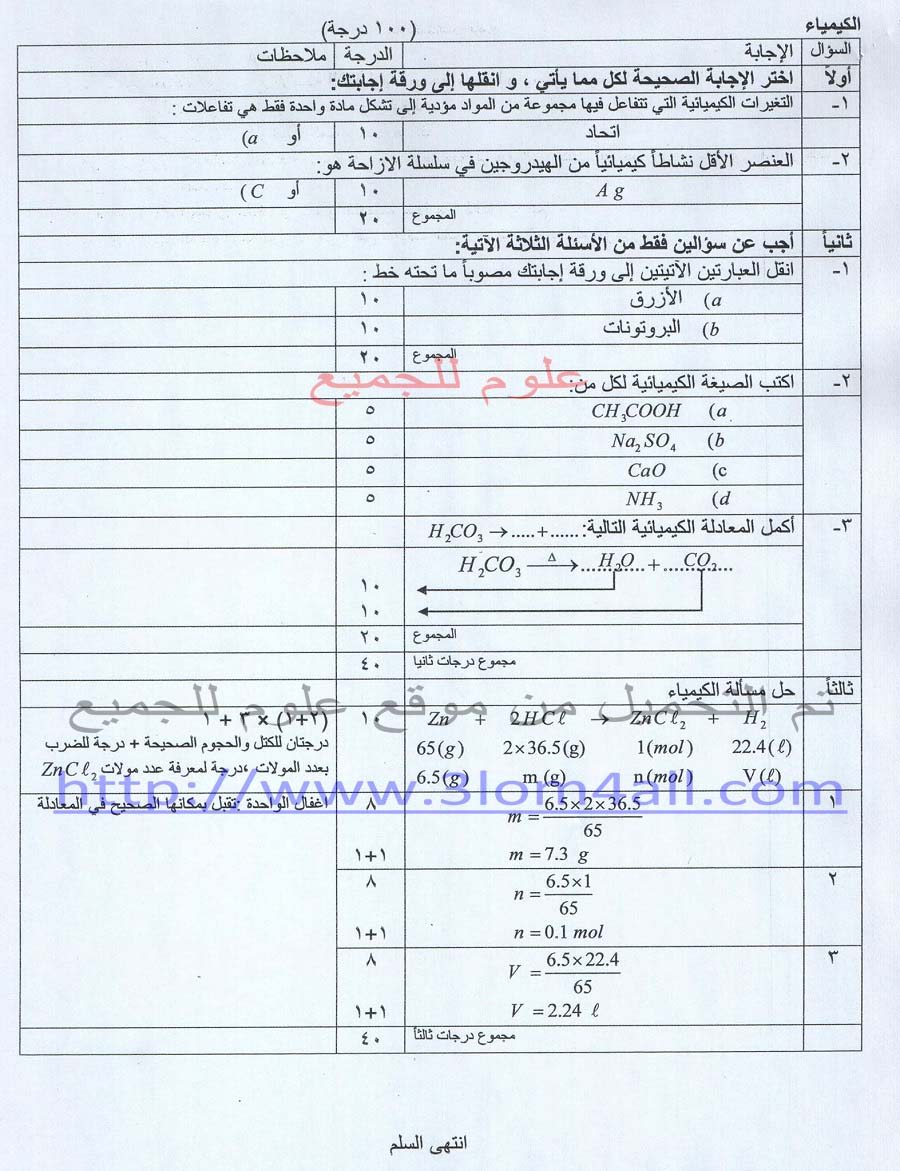 الكيمياء (١٠٠ درجة)
السؤال الإجابة الدرجة ملاحظات
أولاً اختر الإجابة الصحيحة لكل مما يأتي ، و انقلها إلى ورقة إجابتك:
١- التغيرات الكيميائية التي تتفاعل فيها مجموعة من المواد مؤدية إلى تشكل مادة واحدة فقط هي تفاعلات :
اتحاد ١٠ أو a)
٢- العنصر الأقل نشاطاً كيميائياً من الهيدروجين في سلسلة الازاحة هو:
Ag ١٠ أو C )
المجموع ٢٠
ثانياً أجب عن سؤالين فقط من الأسئلة الثلاثة الآتية:
١- انقل العبارتين الآتيتين إلى ورقة إجابتك مصوباً ما تحته خط :
a) الأزرق ١٠
b) البروتونات ١٠
المجموع ٢٠
علوم للجميع
٢- اكتب الصيغة الكيميائية لكل من:
a) CH₃COOH ٥
b) Na₂SO₄ ٥
c) CaO ٥
d) NH₃ ٥
٣- أكمل المعادلة الكيميائية التالية: H₂CO₃ → .....+......
H₂CO₃ —Δ→ ...H₂O... + ...CO₂...
١٠
١٠
المجموع ٢٠
مجموع درجات ثانيا ٤٠
ثالثاً حل مسألة الكيمياء
تم التحميل من موقع علوم للجميع
Zn + 2HCℓ → ZnCℓ₂ + H₂ ١٠ (٢+١) × ٣ + ١
65(g) 2×36.5(g) 1(mol) 22.4(ℓ) درجتان للكتل والحجوم الصحيحة + درجة للضرب
6.5(g) m (g) n(mol) V(ℓ) بعدد المولات ،درجة لمعرفة عدد مولات ZnCℓ₂
http://www.3lom4all.com
١ m = 6.5×2×36.5 / 65 ٨ اغفال الواحدة :تقبل بمكانها الصحيح في المعادلة
m = 7.3 g ١+١
٢ n = 6.5×1 / 65 ٨
n = 0.1 mol ١+١
٣ V = 6.5×22.4 / 65 ٨
V = 2.24 ℓ ١+١
مجموع درجات ثالثاً ٤٠
انتهى السلم